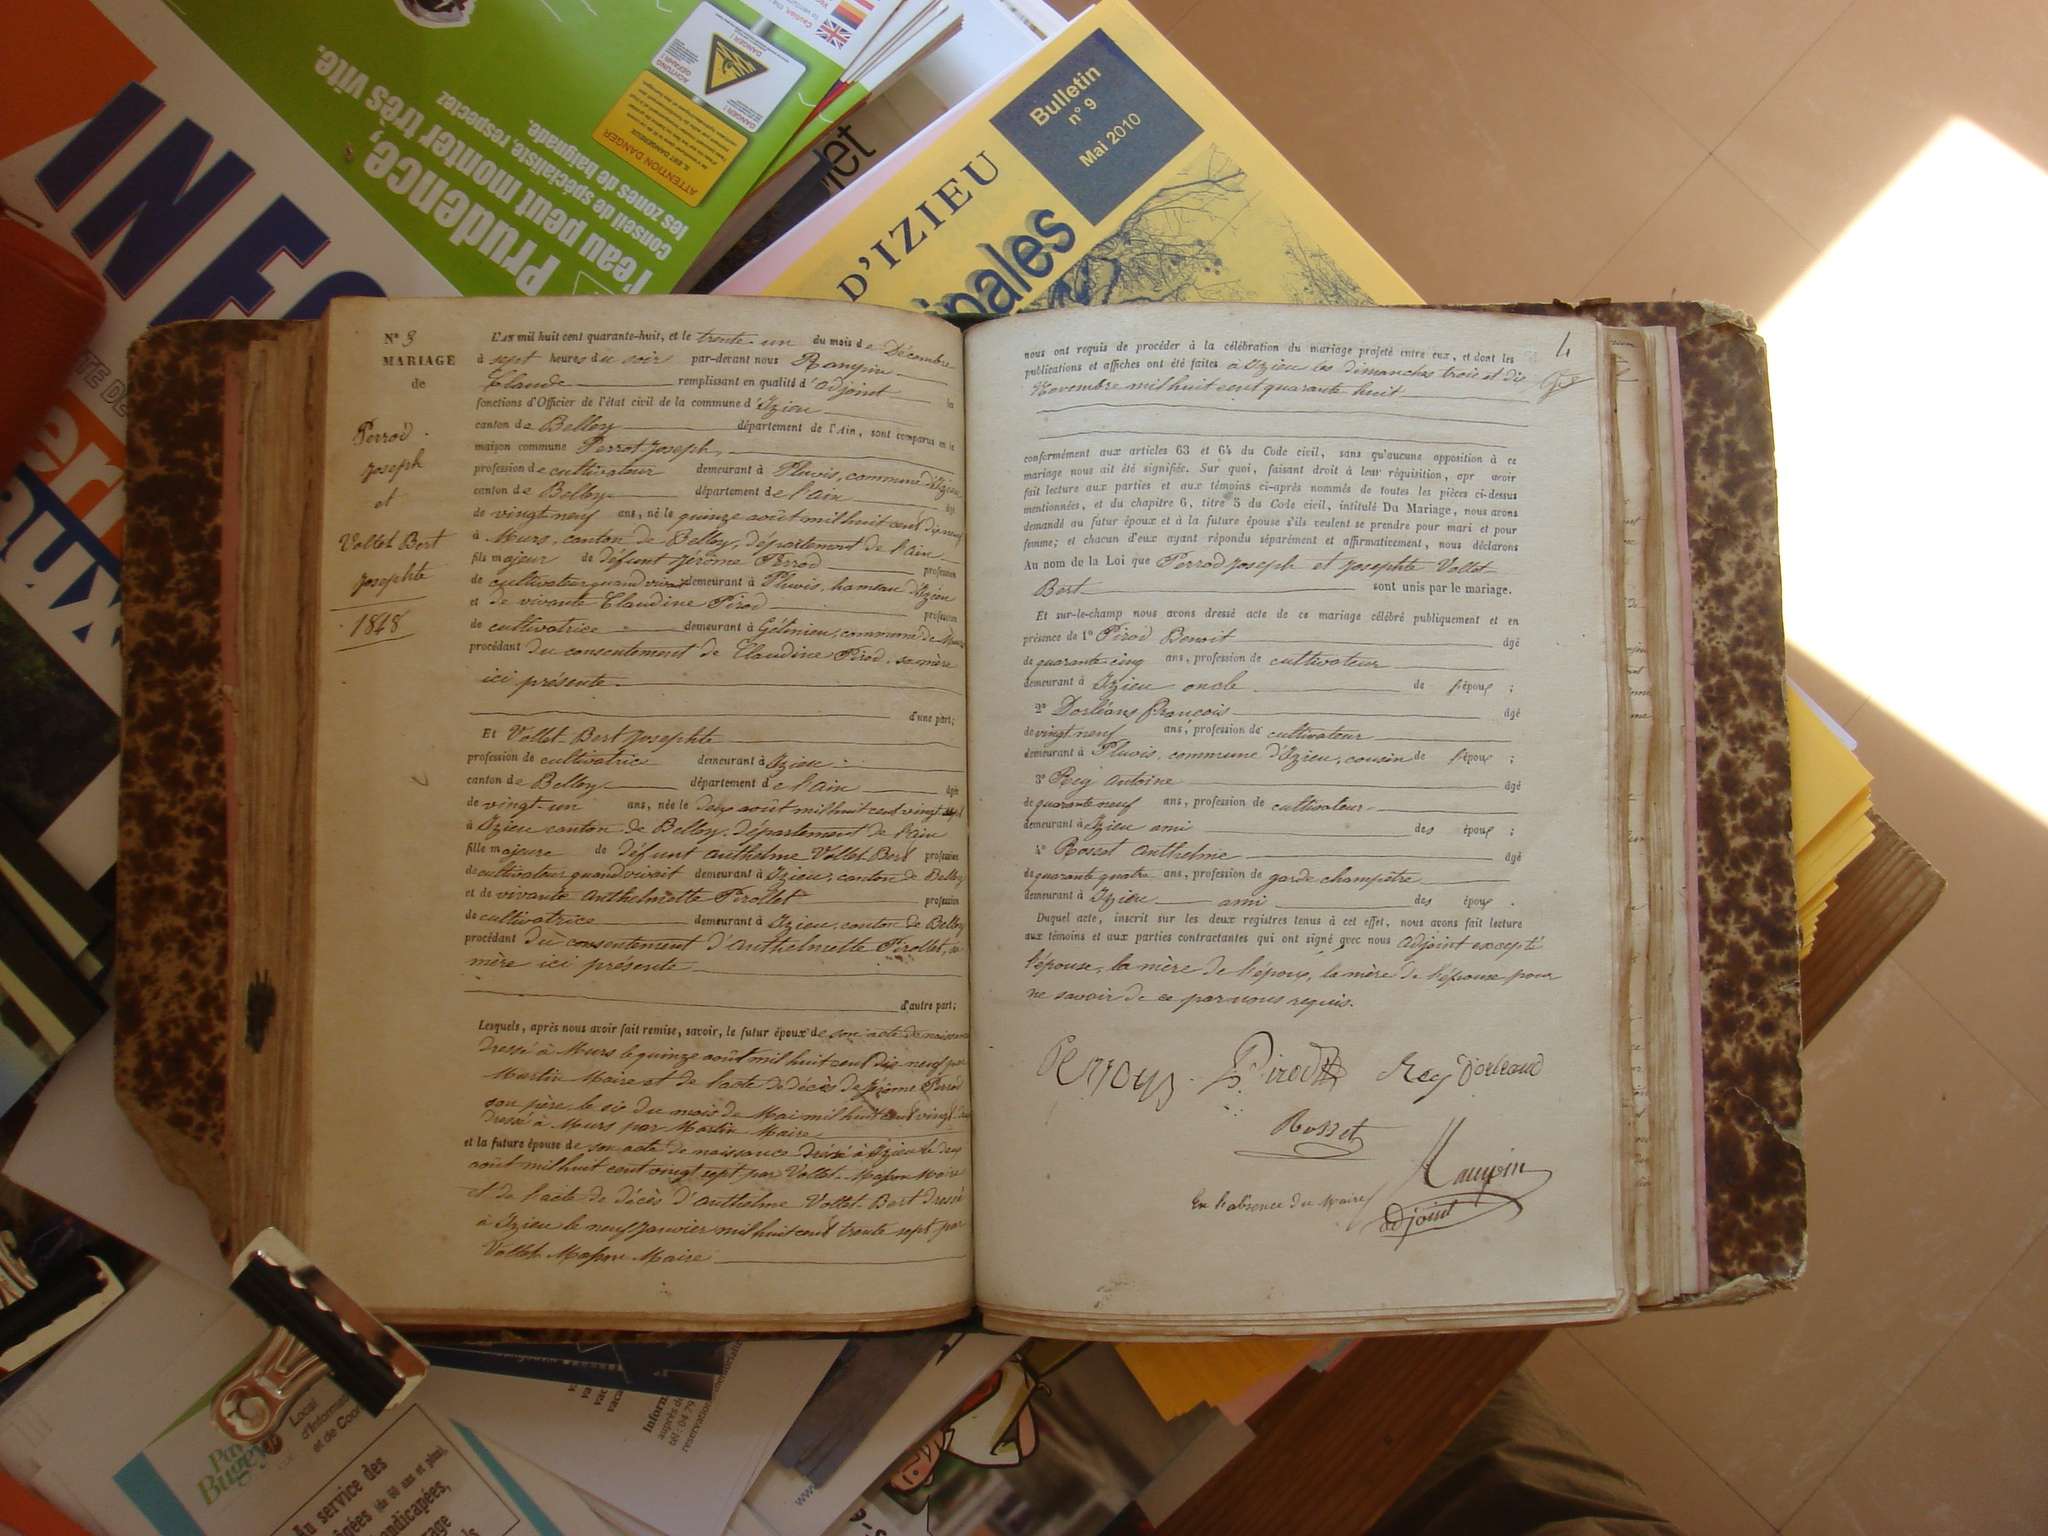 INFO
Prudence,
l'eau peut monter très vite.
conseil de spécialiste, respectez
les zones de baignade.
ATTENTION DANGER
Bulletin
n° 9
Mai 2010
D'IZIEU
ipales
N° 3
MARIAGE
de
Perrod
Joseph
et
Vollet Bert
Josephte
1848
L'AN mil huit cent quarante-huit, et le trente un du mois de Décembre
à sept heures du soir par-devant nous
Claude remplissant en qualité d'adjoint les
fonctions d'Officier de l'état civil de la commune d'Izieu
canton de Belley département de l'Ain, sont comparus en la
maison commune Perrot Joseph,
profession de cultivateur demeurant à Pluvis, commune d'Izieu,
canton de Belley département de l'ain âgé
de vingt neuf ans, né le quinze août mil huit cent dix neuf
à Murs, canton de Belley, département de l'ain
fils majeur de défunt Jérôme Perrod profession
de cultivateur quand vivait demeurant à Pluvis, hameau d'Izieu
et de vivante Claudine Pirod profession
de cultivatrice demeurant à Gélinieu, commune de Murs
procédant du consentement de Claudine Pirod, sa mère
ici présente
d'une part;
Et Vollet-Bert Josephte
profession de cultivatrice demeurant à Izieu
canton de Belley département de l'ain âgée
de vingt-un ans, née le deux août mil huit cent vingt sept
à Izieu canton de Belley, département de l'ain
fille majeure de défunt anthelme Vollet-Bert profession
de cultivateur quand vivait demeurant à Izieu, canton de Belley
et de vivante anthelmette Pirollet profession
de cultivatrice demeurant à Izieu, canton de Belley
procédant du consentement d'anthelmette Pirollet, sa
mère ici présente
d'autre part;
Lesquels, après nous avoir fait remise, savoir, le futur époux de son acte de naissance
dressé à Murs le quinze août mil huit cent dix-neuf par
Martin Maire et de l'acte de décès de Jérôme Perrod
son père, le six du mois de Mai mil huit cent vingt
dressé à Murs par Martin Maire
et la future épouse de son acte de naissance dressé à Izieu le deux
août mil huit cent vingt sept par Vollet-Masson Maire
et de l'acte de décès d'anthelme Vollet-Bert dressé
à Izieu le neuf janvier mil huit cent trente sept par
Vollet-Masson Maire
4
nous ont requis de procéder à la célébration du mariage projeté entre eux, et dont les
publications et affiches ont été faites à Izieu les dimanches trois et dix
Novembre mil huit cent quarante huit
conformément aux articles 63 et 64 du Code civil, sans qu'aucune opposition à ce
mariage nous ait été signifiée. Sur quoi, faisant droit à leur réquisition, apr avoir
fait lecture aux parties et aux témoins ci-après nommés de toutes les pièces ci-dessus
mentionnées, et du chapitre 6, titre 5 du Code civil, intitulé Du Mariage, nous avons
demandé au futur époux et à la future épouse s'ils veulent se prendre pour mari et pour
femme; et chacun d'eux ayant répondu séparément et affirmativement, nous déclarons
Au nom de la Loi que Perrod Joseph et Josephte Vollet
Bert sont unis par le mariage.
Et sur-le-champ nous avons dressé acte de ce mariage célébré publiquement et en
présence de 1° Pirod Benoit âgé
de quarante-cinq ans, profession de cultivateur
demeurant à Izieu oncle de l'époux ;
2° Dorléans françois âgé
de vingt neuf ans, profession de cultivateur
demeurant à Pluvis, commune d'Izieu, cousin de l'époux ;
3° Rey Antoine âgé
de quarante neuf ans, profession de cultivateur
demeurant à Izieu ami des époux ;
4° Rosset Anthelme âgé
de quarante quatre ans, profession de garde champêtre
demeurant à Izieu ami des époux .
Duquel acte, inscrit sur les deux registres tenus à cet effet, nous avons fait lecture
aux témoins et aux parties contractantes qui ont signé avec nous adjoint excepté
l'épouse, la mère de l'époux, la mère de l'épouse pour
ne savoir de ce par nous requis.
Pirod Rey Dorléans
Rosset
En l'absence du Maire
adjoint
Local
d'Informat
et de Coor
Bugey
Au service des
âgées